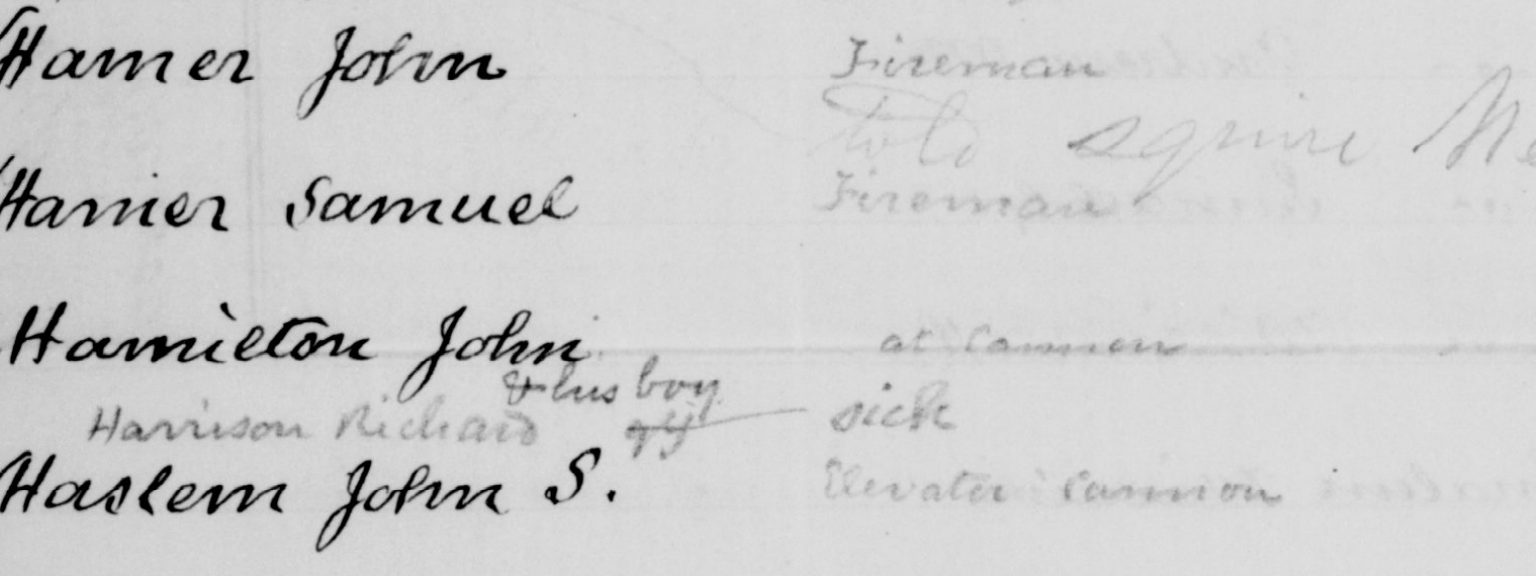 Hamer John Fireman
told squire
Hamer Samuel Fireman
Hamilton John at Cannon
& his boy
Harrison Richard sick
Haslem John S. Elevator Cannon